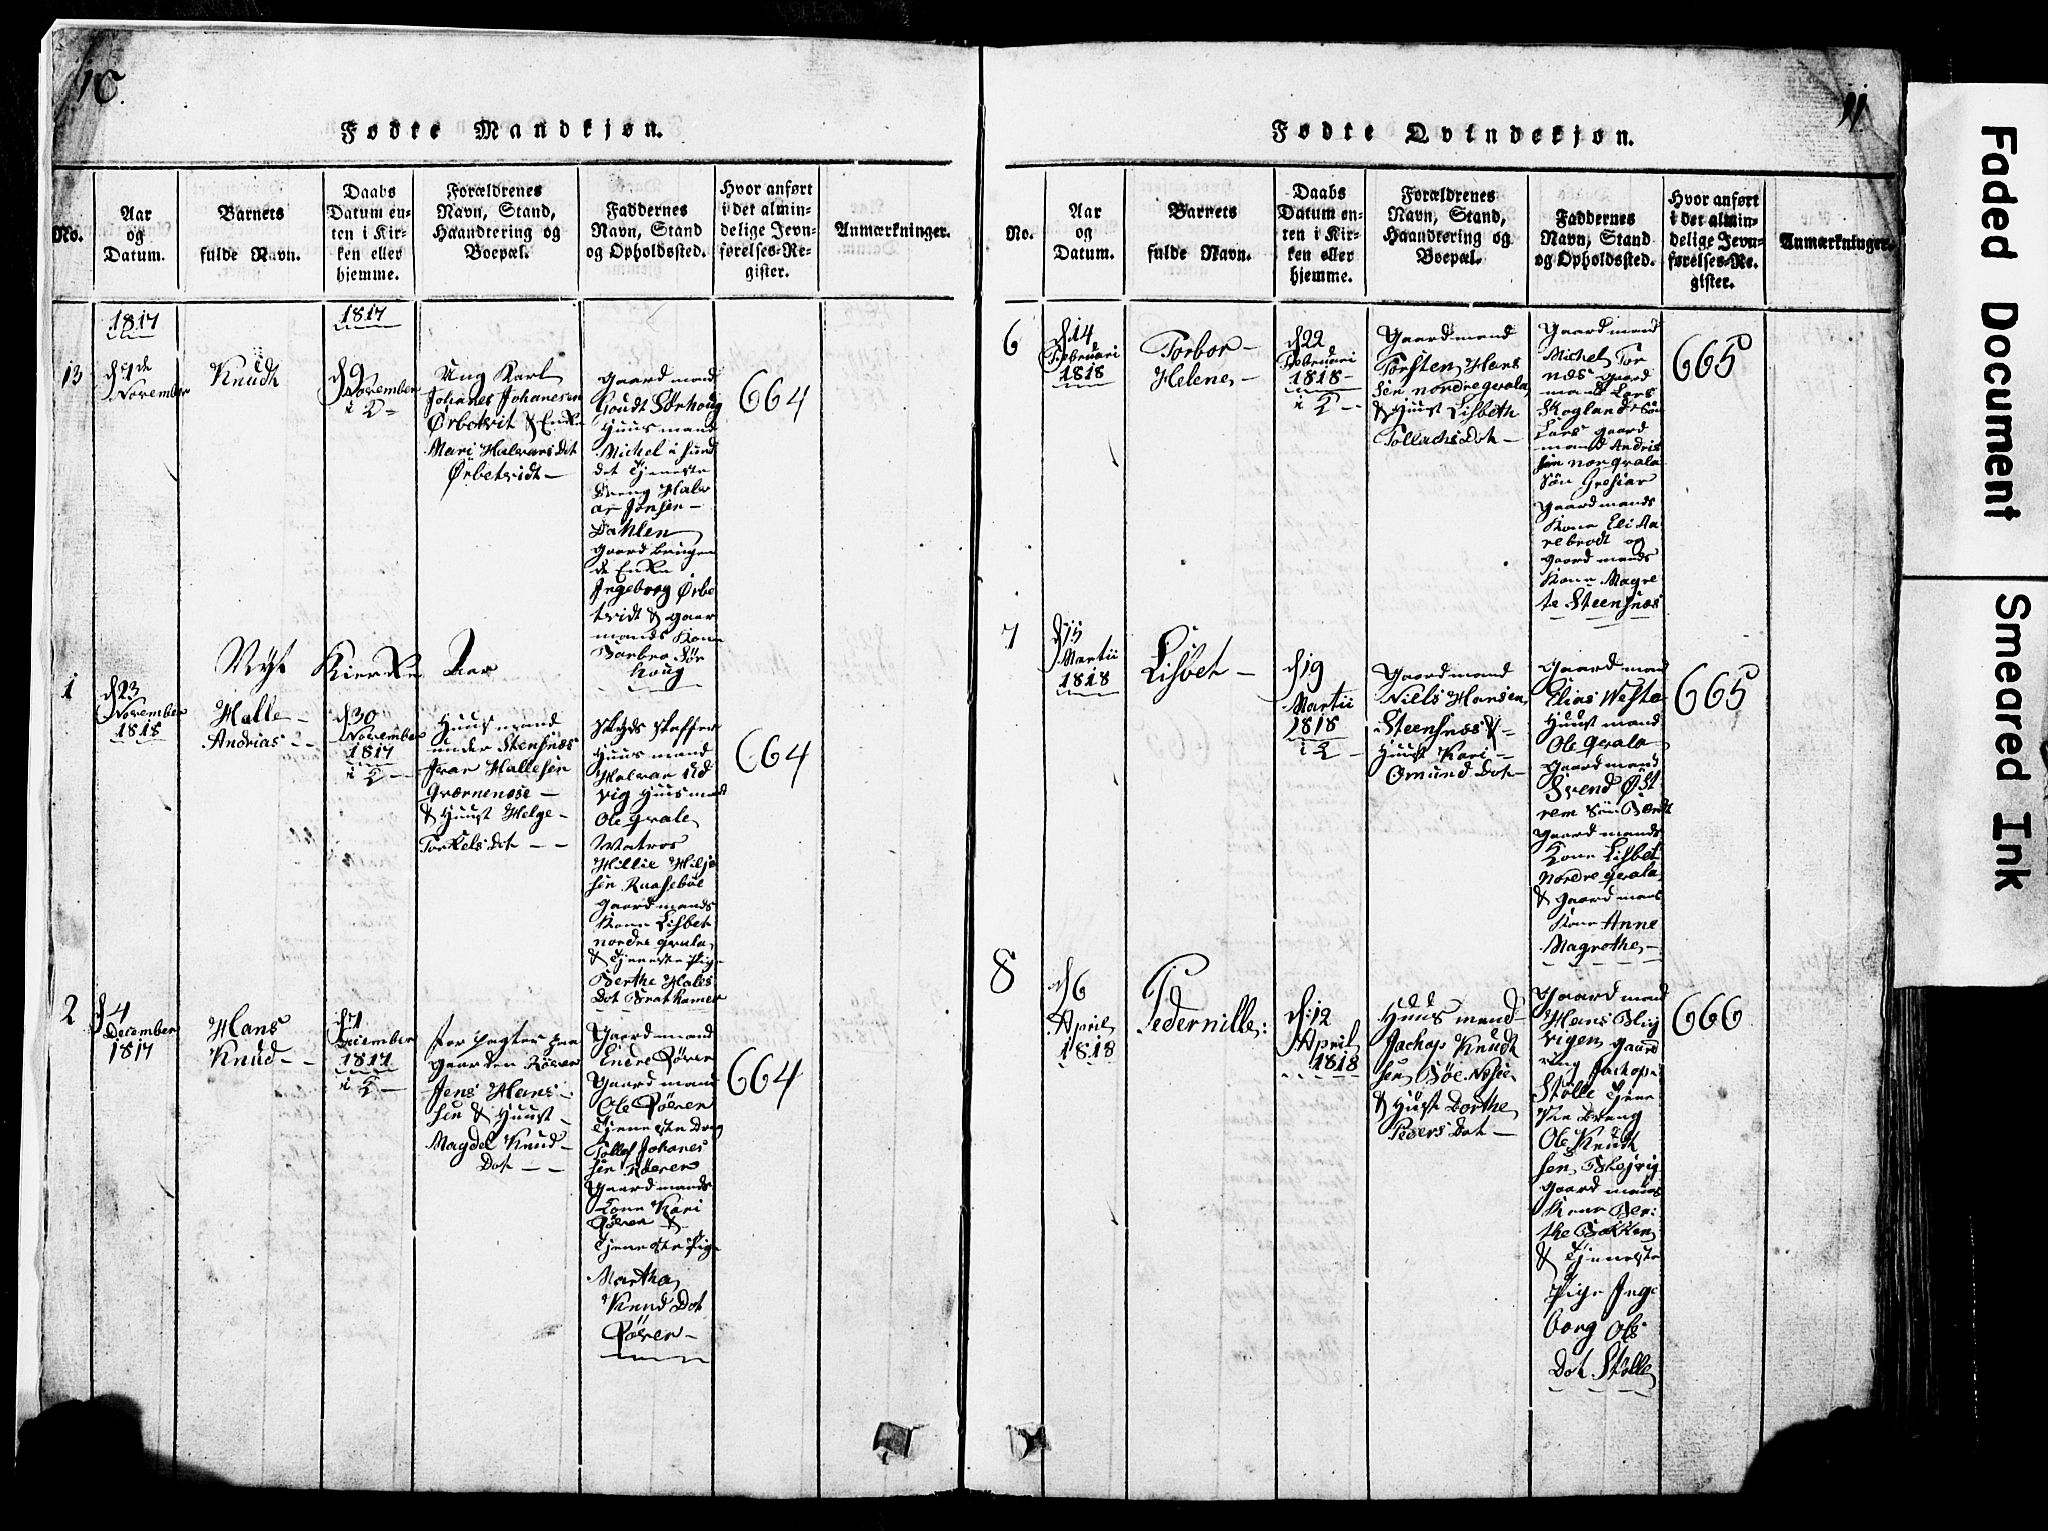 10.
Fødte Mandkjøn.
No.
Aar
og
Datum.
Barnets
fulde Navn.
Daabs
Datum en-
ten i Kir-
ken eller
hjemme.
Forældrenes
Navn, Stand,
Haandtering og
Boepæl.
Faddernes
Navn, Stand
og Opholdssted.
Hvor anført
i det almin-
delige Jevn-
førelses-Re-
gister.
Anmærkninger.
1817
1817
13
November
Knudt
d 9
November
Ung Karl
Johanes Johanesen
Ørbekvit & Enke
Mari Halvars Dot
Ørbekvidt
Gaard mand
Goudt Sørhoug
Huus mand
Michel i Hund
det Tjeneste
Dreng Halv
ar Jonsen
Dahlen
Gaard brugen
de Enke
Ingeborg Ørbe
kvidt & gaar
mands Kone
Barbra Sør
houg
664
Nyt Kierke Aar
1
d 23
November
1818
Halle
Andrias
d 30
November
1817
Huus mand
under Stensnæs
Ivar Hallesen
& Huust Helge
Torkels Dot
Skyds skaffer
Huus mand
Halvar
vig Huus mand
Ole Grale
Matros
Hillie
sen
Gaard mands
Kone Lisbet
nordre grala
& Tjeneste Pige
Berthe Hales
Dot Bratkamer
664
2
d 4
December
1817
Hans
Knud
d 7
December
1817
For pagter paa
gaarden Røever
Jens Hans
sen & Huust
Magdel Knud
Dot
Gaard mand
Endre Røever
Gaard mand
Ole Røever
Tjeneste Drng
Tollef Johanes
sen Røever
Gaard mands
Kone Kari
Røever &
Tjeneste Pige
Martha
Knud Dot
Røever
664
11.
Fødte Qvindekjøn.
No.
Aar
og
Datum.
Barnets
fulde Navn.
Daabs
Datum en-
ten i Kir-
ken eller
hjemme.
Forældrenes
Navn, Stand,
Haandtering og
Boepæl.
Faddernes
Navn, Stand
og Opholdssted.
Hvor anført
i det almin-
delige Jevn-
førelses-Re-
gister.
Anmærkninger.
6
d 14
Februari
1818
Torbor
Helene
d 22
Februari
1818
Gaard mand
Torsten Hans
sen nordre grala
& Huust Lisbeth
Tollachs Dot
Gaard mand
Michel Tor
næs gaard
mand Lars
Skogland Søn
Lars gaard
mand Andris
nor grala
Søn
Gaard mands
Kone Eli Aa
rebrodt og
gaard mands
Kone Magre
te Steensnæs
665
7
d 15
Martii
1818
Lisbet
d 19
Martii
1818
Gaard mand
Niels Hansen
Steensnæs &
Huust Kari
Omund Dot
Gaard mand
Elias
Huus mand
Ole Grala
Gaard mand
Svend Øst
rem Søn Berdt
Gaard mands
Kone Lisbet
Nordre grala
& Gaard mans
Kone Anne
Magrethe
665
8
d 6
April
1818
Pedernille:
d: 12
April
1818
Huus mand
Jachop Knudt
sen Bøe
& Huust Dorthe
Peders Dot
Gaard mand
Hans Blig
vigen gaard
Jachop
Stolle Tjene
ste Dreng
Ole Knudt
sen
Gaard mans
Kone Ber:
the Bakken
& Tjeneste
Pige Inge
borg Ols
Dot Stolle
666
Faded Document
Smeared Ink